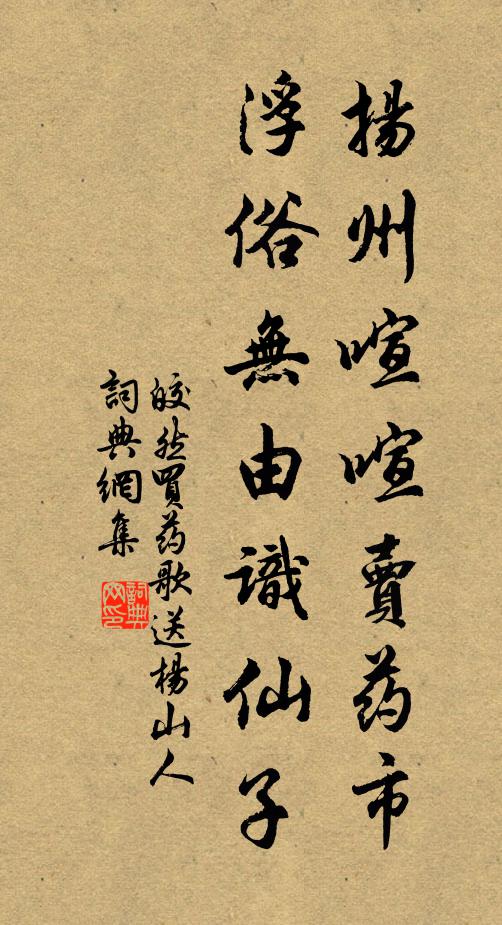 揚州喧喧賣药市
浮俗無由識仙子
皎然買药歌送楊山人
詞典網集
詞典网印